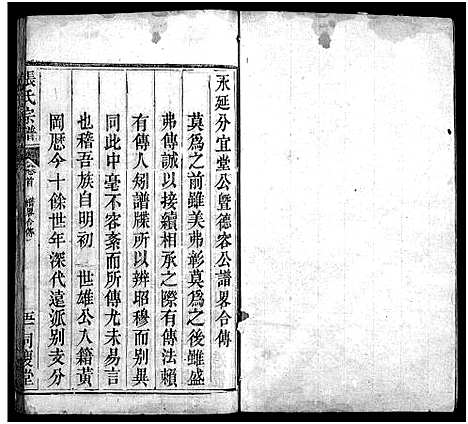 永延分宜堂公暨德容公譜畧合傳
莫爲之前雖美弗彰莫爲之後雖盛
弗傳誠以接續相承之際有傳法賴
有傳人矧譜牒所以辨昭穆而别異
同此中毫不容紊而所傳尤未易言
也稽吾族自明初　世雄公入籍黃
岡歴今十餘世年深代遠派别支分
張氏宗譜
卷首
譜畧合傳